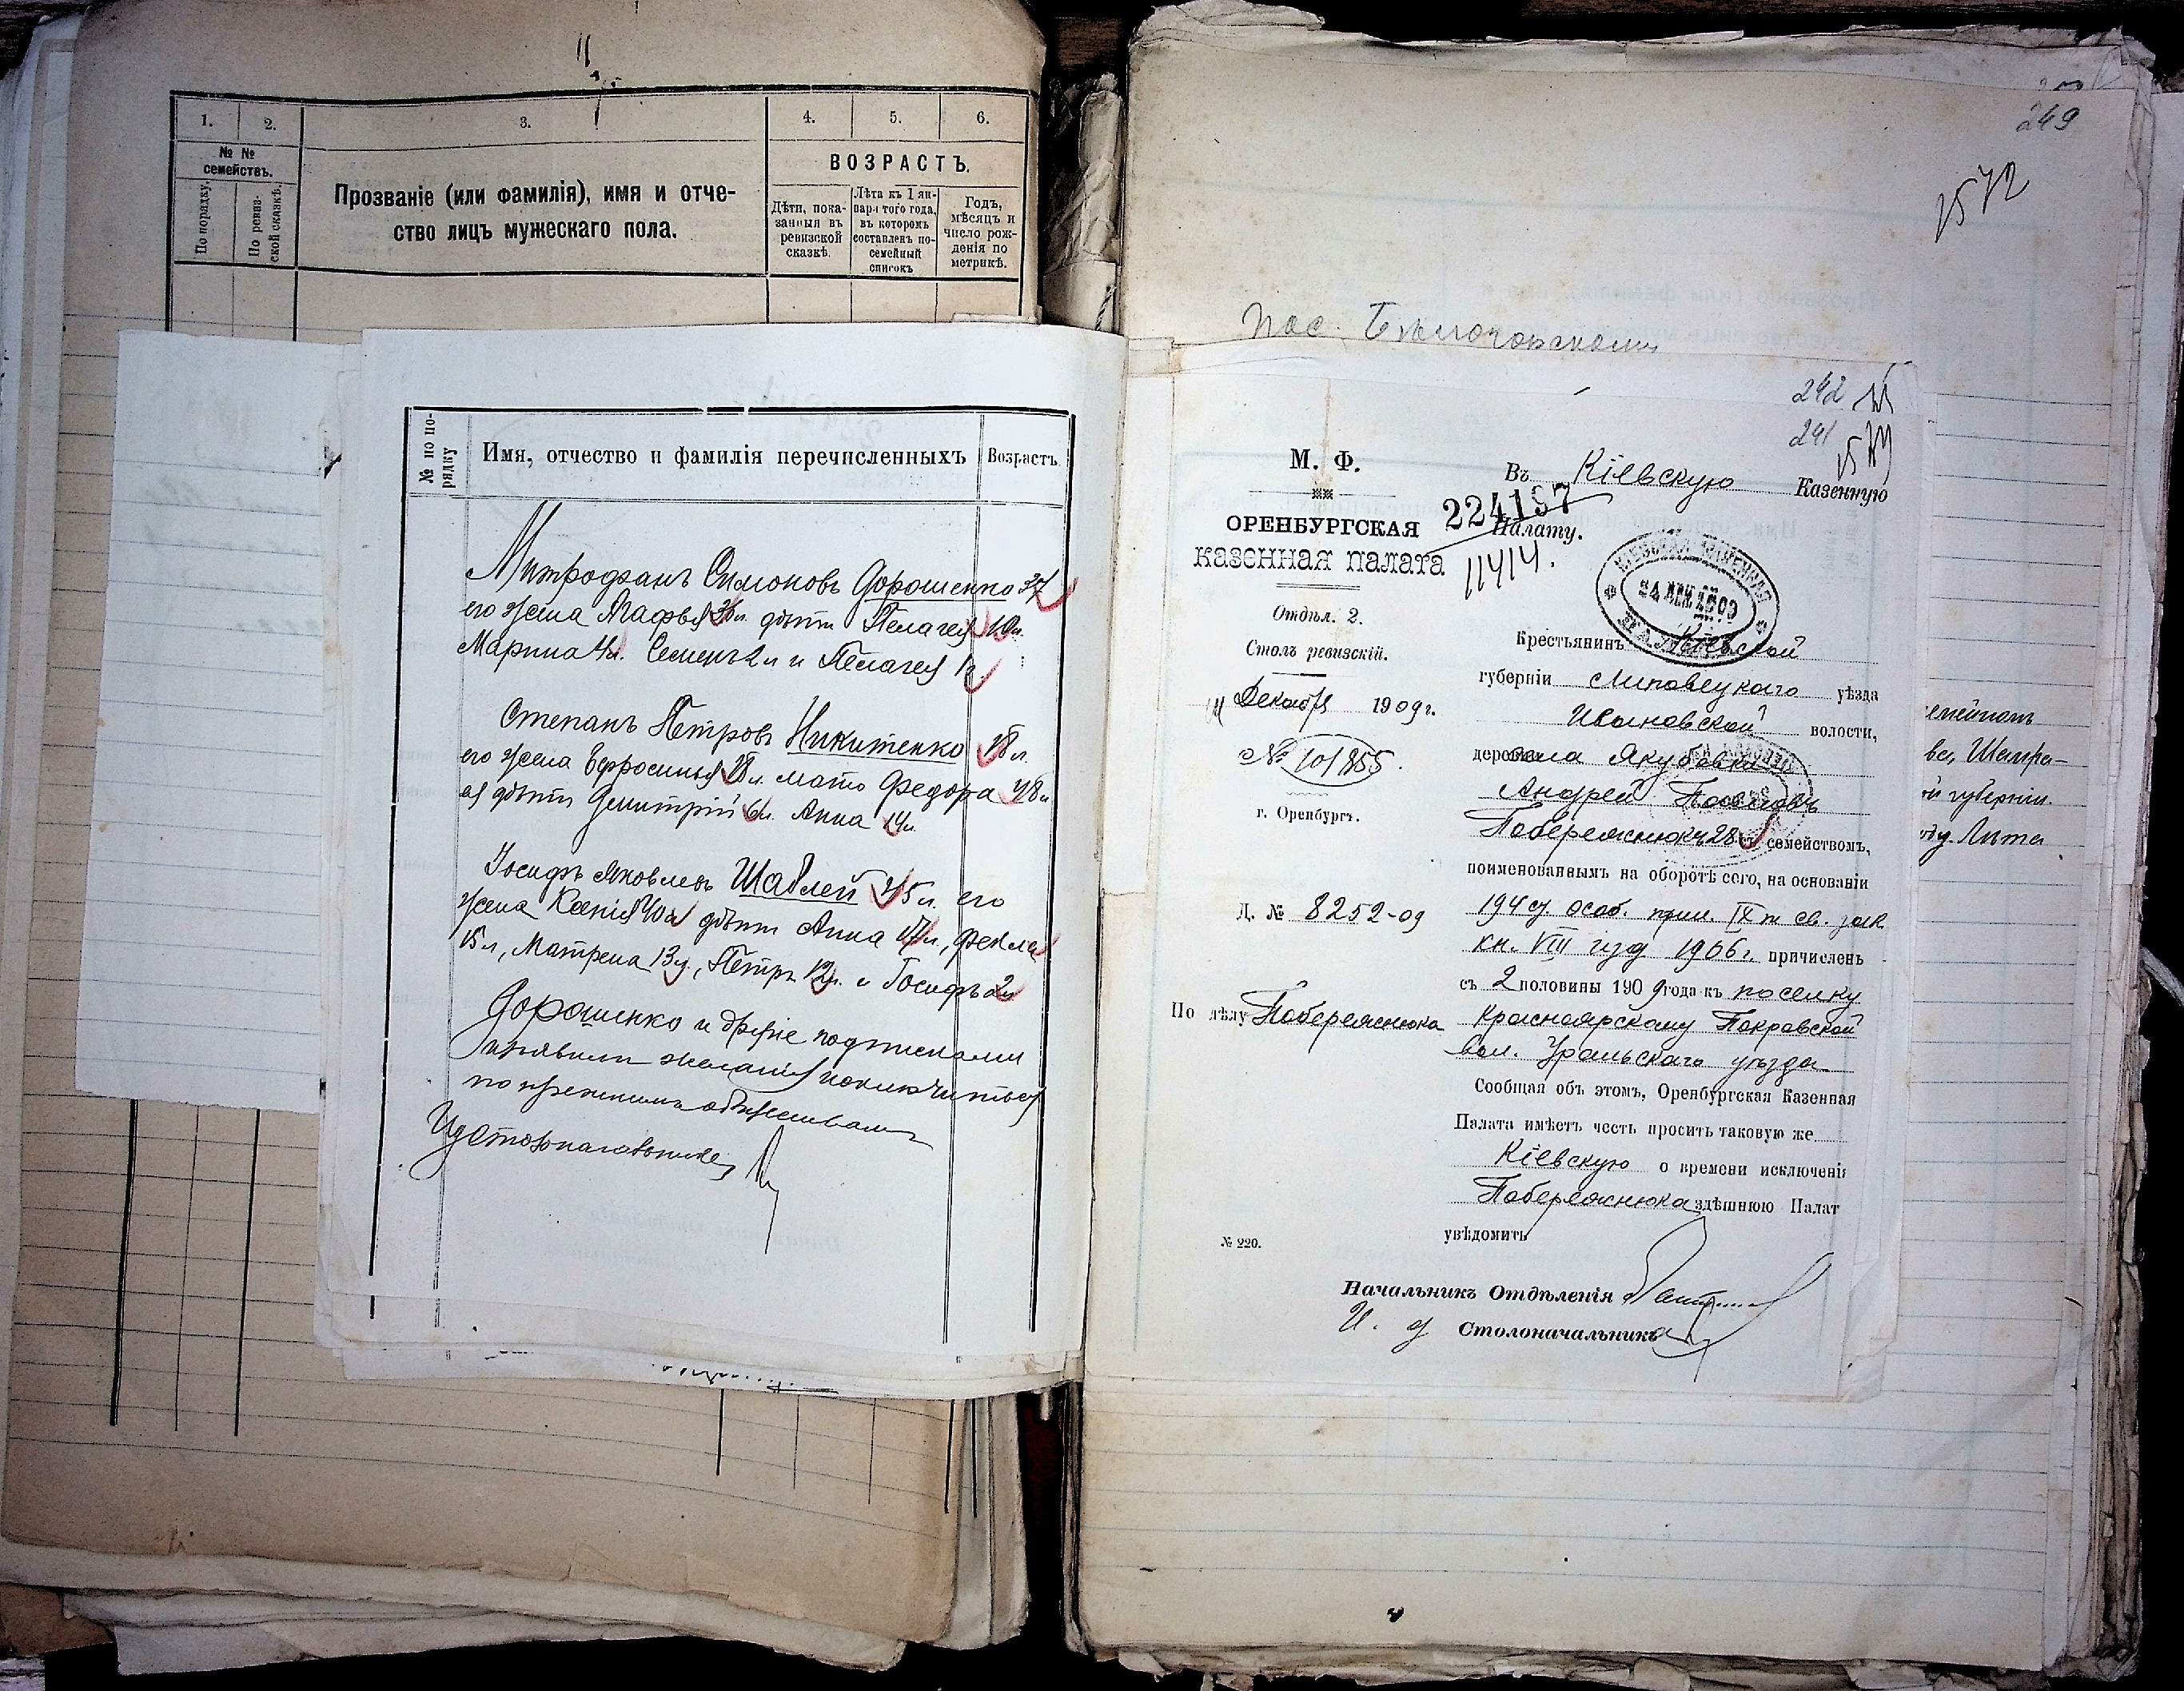 1. 2. 3. 4. 5. 6.
№ № семействъ.
По порядку.
По ревиз-
ской сказкѣ.
Прозваніе (или фамилія), имя и отче-
ство лицъ мужескаго пола.
ВОЗРАСТЪ.
Дѣти, пока-
занныя въ
ревизской
сказкѣ.
Лѣта къ 1 ян-
варя того года,
въ которомъ
составленъ по-
семейный
списокъ
Годъ,
мѣсяцъ и
число рож-
денія по
метрикѣ.
№ по по-
рядку
Имя, отчество и фамилія перечисленныхъ
Возрастъ
Митрофанъ Симоновъ Дорошенко 37
его жена Агафья 36 л. дѣти Пелагея 10 л.
Марина 4 л. Семенъ 2 л и Пелагея 1 г.
Степанъ Петровъ Никитенко 28 л.
его жена Ефросинья 28 л. мать Федора 48 л
ея дѣти Дмитрій 6 л. Анна 14 л.
Іосифъ Яковлевъ Шаблей 45 л. его
жена Ксенія 40 л дѣти Анна 17 л., Фекла
15 л, Матрена 13 л., Петръ 12 л. и Іосифъ 2 л
Дорошенко и другіе подписками
изъявили желаніе исключиться
по прежнимъ обществамъ
249
1572
пос. Бѣлогорскому
242
241
М. Ф.
ОРЕНБУРГСКАЯ
КАЗЕННАЯ ПАЛАТА
Отдѣл. 2.
Столъ ревизскій.
11 Декабря 1909 г.
№ 101855.
г. Оренбургъ.
Д. № 8252-09
По дѣлу Побережнюка
№ 220.
Въ Кіевскую Казенную
224197
Палату.
11414.
КІЕВСКАЯ КАЗЕННАЯ
ПАЛАТА
Крестьянинъ Кіевской
губерніи Липовецкаго уѣзда
Ивановской волости,
деревни села Якубовки
Андрей Павловъ
Побережнюкъ 28 л съ семействомъ,
поименованнымъ на оборотѣ сего, на основаніи
194 ст. особ. прил. IX т св. зак
кн. VIII изд 1906 г. причисленъ
съ 2 половины 1909 года къ поселку
Красноярскому Покровской
вол. Уральскаго уѣзда
Сообщая объ этомъ, Оренбургская Казенная
Палата имѣетъ честь просить таковую же
Кіевскую о времени исключенія
Побережнюка здѣшнюю Палат
увѣдомить
Начальникъ Отдѣленія
И. д Столоначальника
ва, Шатра-
ой губерніи.
Лѣта